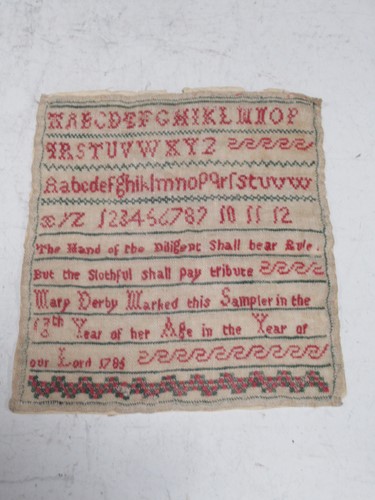 ABCDEFGHIKLMNOP
QRSTUVWXYZ
abcdefghiklmnopqrſstuvw
xyz 123456789 10 11 12
The Hand of the Diligent Shall bear Rule.
But the Slothful shall pay tribute
Mary Derby Marked this Sampler in the
13th Year of her Age in the Year of
our Lord 1785